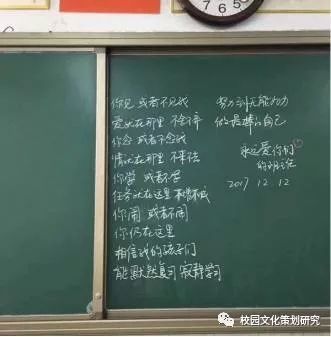 你见 或者不见我
爱就在那里 不舍弃
你念 或者不念我
情就在那里 不来去
你学 或者不学
任务就在这里
你闹 或者不闹
你仍在这里
相信我的孩子们
能默然复习 寂静学习
努力到无能为力
做最棒的自己
永远爱你们
的班
2017 12 12
校园文化策划研究